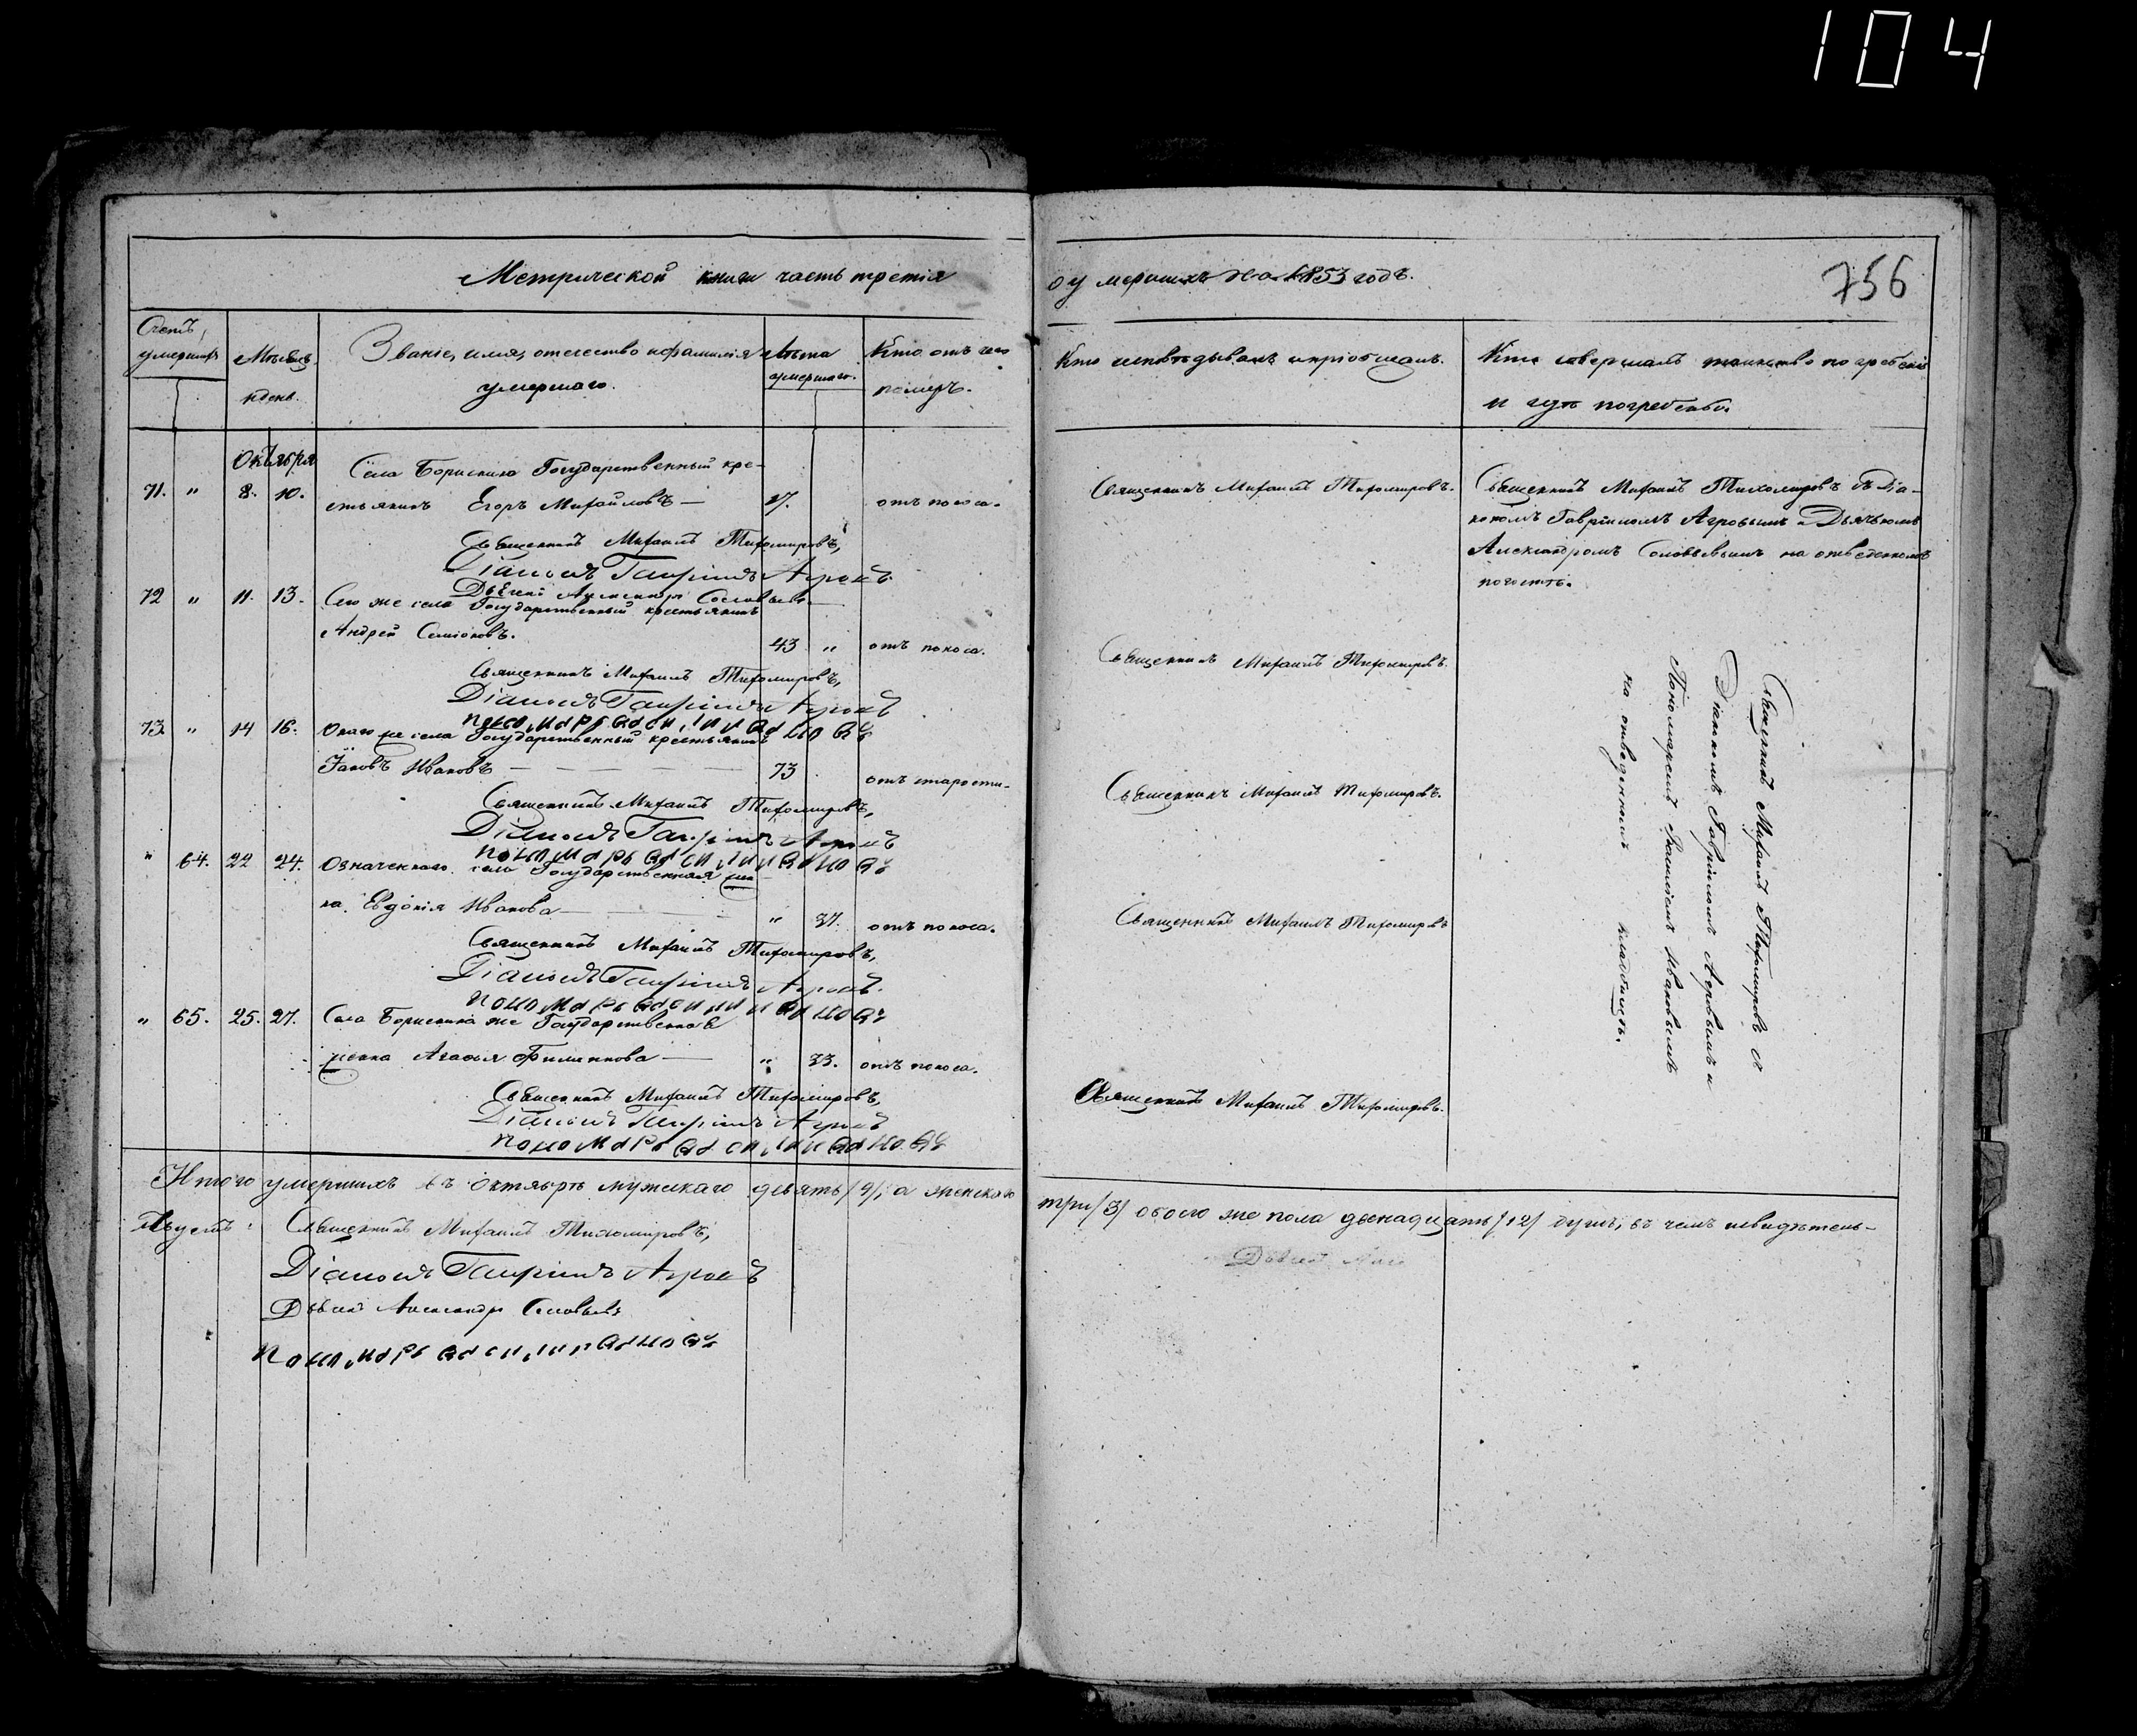 104
Метрической книги часть третія
о умершихъ на 1853 годъ.
756
Счетъ умершихъ
Мѣсяцъ и день.
Званіе, имя, отчество и фамилія умершаго.
Лѣта умершаго.
Кто отъ чего померъ.
Кто исповѣдывалъ и пріобщалъ.
Кто совершалъ таинство погребенія
и гдѣ погребены.
Октября
Села Борискина Государственный кре-
71. " 8. 10. стьянинъ Егоръ Михайловъ — 27. отъ поноса.
Священникъ Михаилъ Тихомировъ,
Діаконъ Гавріилъ Агровъ
Дьячекъ Александръ Соловьевъ
72 " 11. 13. Сего же села Государственный крестьянинъ
Андрей Семіоновъ. 43 " отъ поноса.
Священникъ Михаилъ Тихомировъ,
Діаконъ Гавріилъ Агровъ
пономарь василіи ивановъ
73. " 14 16. Онаго же села Государственный крестьянинъ
Іаковъ Ивановъ — 73 отъ старости.
Священникъ Михаилъ Тихомировъ,
Діаконъ Гавріилъ Агровъ
пономарь василіи ивановъ
" 64. 22 24. Означеннаго села Государственная
ка Евдокія Иванова — " 37. отъ поноса.
Священникъ Михаилъ Тихомировъ,
Діаконъ Гавріилъ Агровъ.
пономарь василіи ивановъ
" 65. 25. 27. Села Борискина же Государственная
Агафья Филиппова — " 33. отъ поноса.
Священникъ Михаилъ Тихомировъ,
Діаконъ Гавріилъ Агровъ
пономарь василіи ивановъ
Итого умершихъ въ Октябрѣ мужескаго девять /9/, а женскаго
Священникъ Михаилъ Тихомировъ,
Діаконъ Гавріилъ Агровъ
Дьячекъ Александръ Соловьевъ
пономарь василіи ивановъ
Священникъ Михаилъ Тихомировъ.
Священникъ Михаилъ Тихомировъ съ Діа-
кономъ Гавріиломъ Агровымъ и Дьячкомъ
Александромъ Соловьевымъ на отведенномъ
погостѣ.
Священникъ Михаилъ Тихомировъ.
Священникъ Михаилъ Тихомировъ.
Священникъ Михаилъ Тихомировъ
Священникъ Михаилъ Тихомировъ.
Священникъ Михаилъ Тихомировъ съ
Діакономъ Гавріиломъ Агровымъ и
Пономаремъ Василіемъ Ивановымъ
на отведенномъ кладбищѣ.
три /3/ обоего же пола двенадцать /12/ душъ, въ чемъ и свидѣтель-